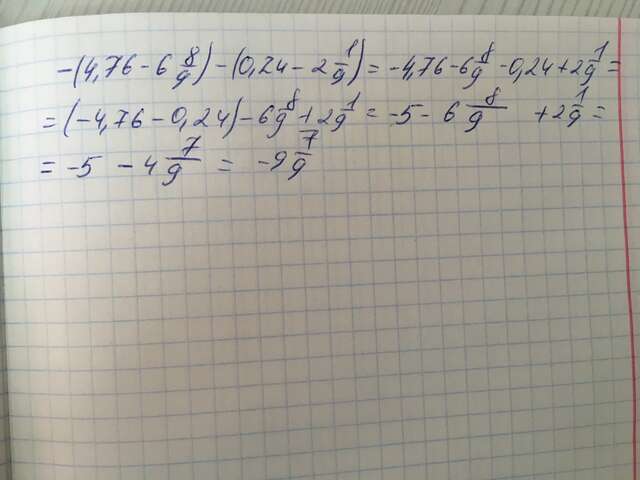 -(4,76 - 6 8/9) - (0,24 - 2 1/9) = -4,76 - 6 8/9 - 0,24 + 2 1/9 =
= (-4,76 - 0,24) - 6 8/9 + 2 1/9 = -5 - 6 8/9 + 2 1/9 =
= -5 - 4 7/9 = -9 7/9